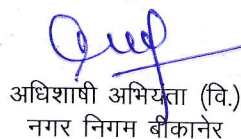 अधिशाषी अभियंता (वि.)
नगर निगम बीकानेर